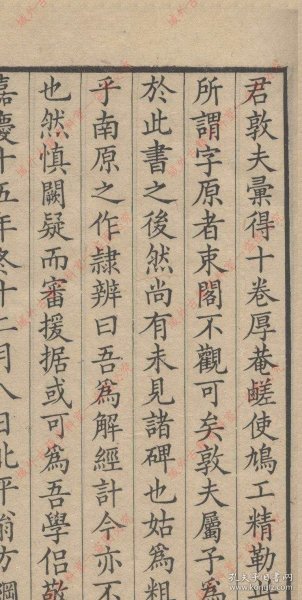 君敦夫彙得十卷厚菴鹺使鳩工精勤
所謂字原者束閣不觀可矣敦夫屬予爲
於此書之後然尚有未見諸碑也姑爲粗
乎南原之作隸辨曰吾爲解經計今亦不
也然慎闕疑而審援据或可爲吾學侶敬
嘉慶十五年冬十二月八日北平翁方綱